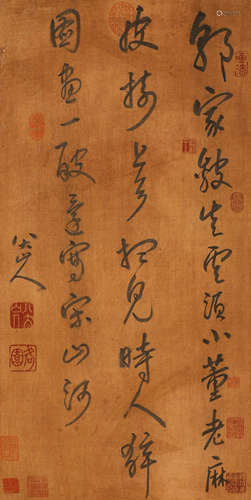 郭家皴法雲頭小董老麻
皮樹上多想見時人解
圖畫一峯還寫宋山河
八大山人